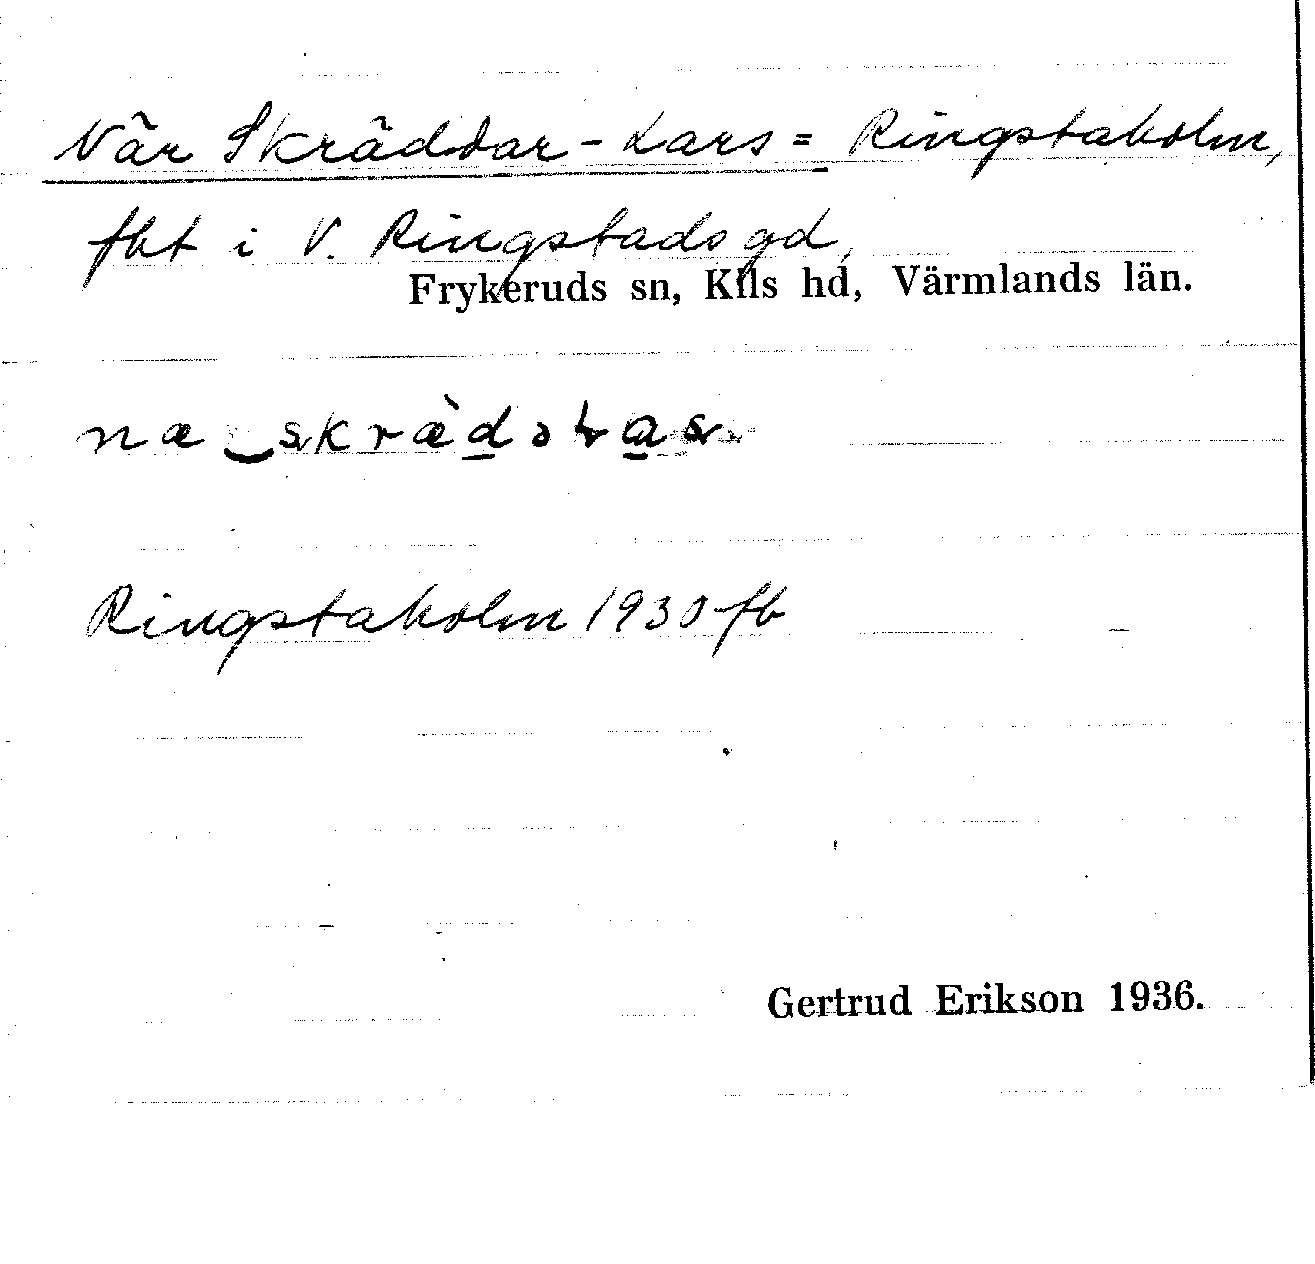 När Skräddar-Lars = Ringstaholm,
fht i V. Ringstads gd,
Frykeruds sn, Kils hd, Värmlands län.
Ringstaholm 1930 fb
Gertrud Erikson 1936.